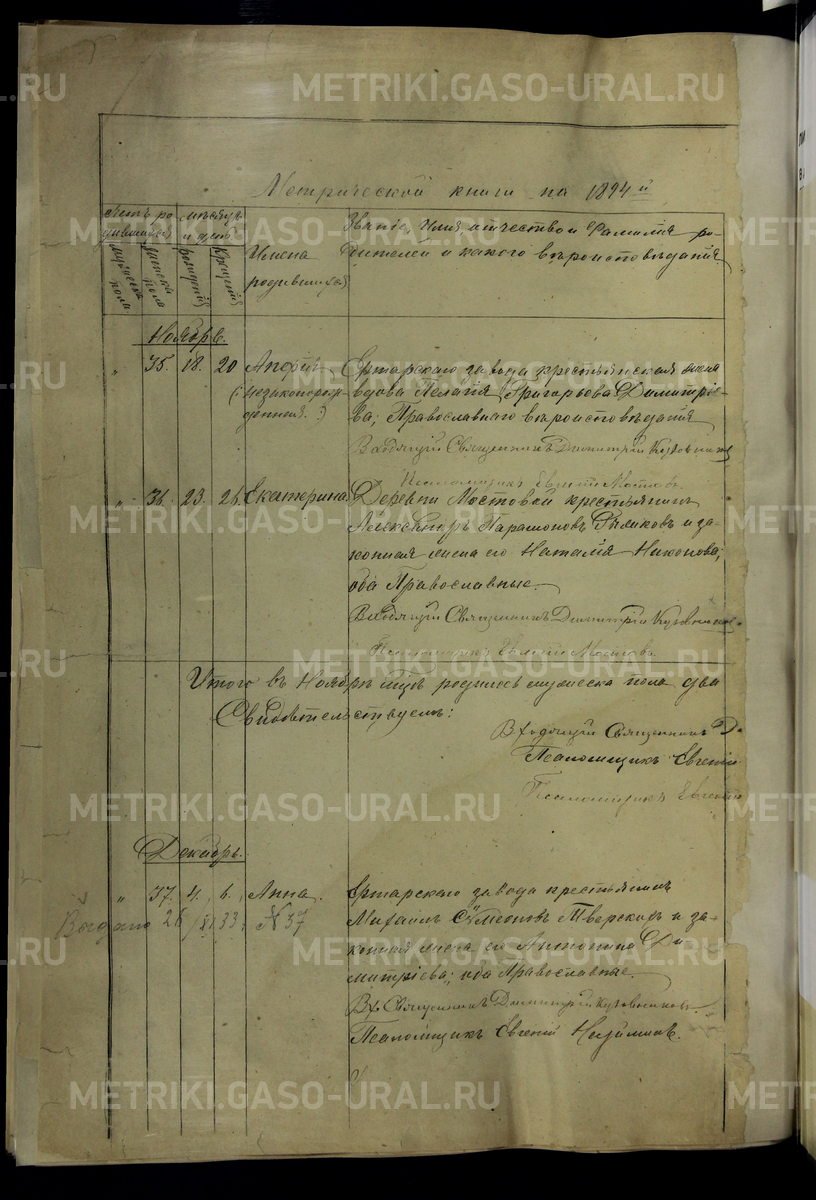 Метрической книги на 1894й
Счетъ ро
дившихся
Мужеска пола
Женска пола
Мѣсяцъ
и день
Рожденія
Крещенія
Имена
родившихся
Званіе, Имя, отчество и Фамилія ро-
дителей и какого вѣроисповѣданія
Ноябрь.
" 35. 18. 20
(:незаконорож-
денная.:)
Ертарскаго завода крестьянская жена
вдова Пелагія Григорьева Димитріе-
ва; Православнаго вѣроисповѣданія
Входящій Священникъ Димитрій
Псаломщикъ Евгеній
" 36. 23. 26. Екатерина
Деревни Мостовой крестьянинъ
Александръ Парамоновъ и за-
конная жена его Наталія Никонова;
оба Православные.
Входящій Священникъ Димитрій
Псаломщикъ Евгеній
Итого въ Ноябрѣ мцѣ родилось мужеска пола два
Свидѣтельствуемъ:
Входящій Священникъ Ди
Псаломщикъ Евгеній
Псаломщикъ Евгеній
Декабрь.
" 37. 4. 6. Анна.
Ертарскаго завода крестьянинъ
Михаилъ Сѷмеоновъ Тверскихъ и за-
конная жена его Антонина Ди-
митріева; оба Православные.
Вх. Священникъ Димитрій
Псаломщикъ Евгеній
№ 37
METRIKI.GASO-URAL.RU